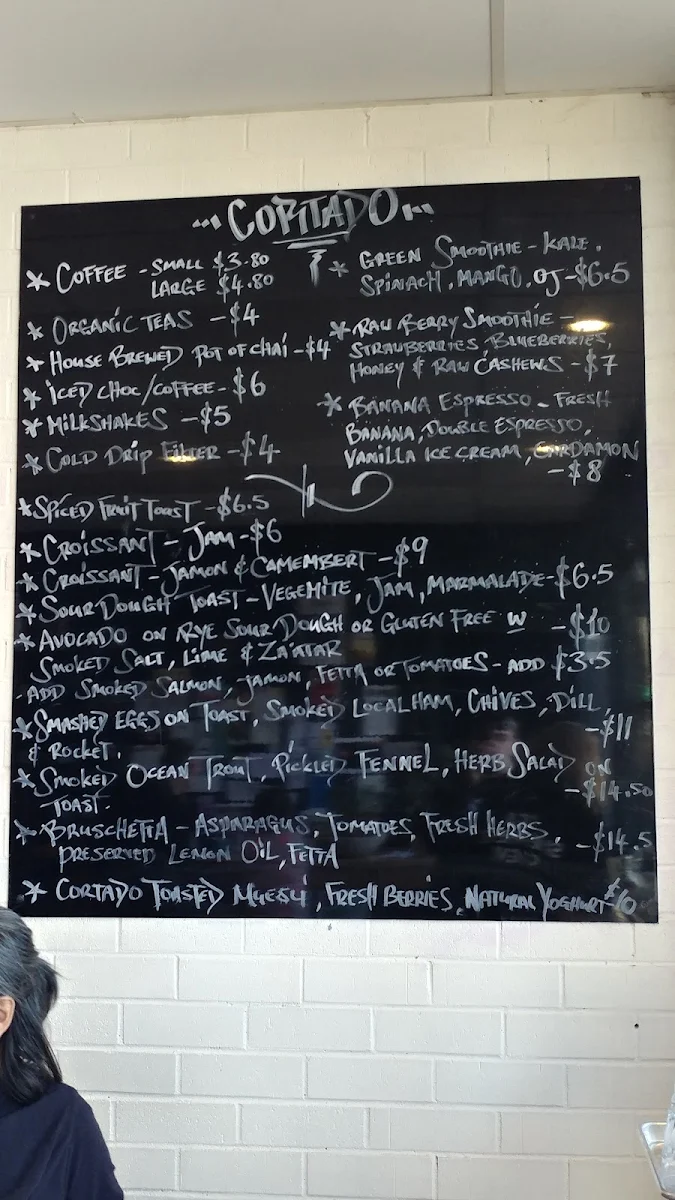 CORTADO
* COFFEE - SMALL $3.80
LARGE $4.80
* ORGANIC TEAS - $4
* HOUSE BREWED POT OF CHAI - $4
* ICED CHOC/COFFEE - $6
* MILKSHAKES - $5
* COLD DRIP FILTER - $4
* GREEN SMOOTHIE - KALE,
SPINACH, MANGO, OJ - $6.5
* RAW BERRY SMOOTHIE -
STRAWBERRIES BLUEBERRIES,
HONEY & RAW CASHEWS - $7
* BANANA ESPRESSO - FRESH
BANANA, DOUBLE ESPRESSO,
VANILLA ICE CREAM, CARDAMON
- $8
* SPICED FRUIT TOAST - $6.5
* CROISSANT - JAM - $6
* CROISSANT - JAMON & CAMEMBERT - $9
* SOUR DOUGH TOAST - VEGEMITE, JAM, MARMALADE - $6.5
* AVOCADO ON RYE SOUR DOUGH OR GLUTEN FREE W - $10
SMOKED SALT, LIME & ZA'ATAR
- ADD SMOKED SALMON, JAMON, FETTA OR TOMATOES - ADD $3.5
* SMASHED EGGS ON TOAST, SMOKED LOCAL HAM, CHIVES, DILL,
& ROCKET. - $11
* SMOKED OCEAN TROUT, PICKLED FENNEL, HERB SALAD ON
TOAST. - $14.50
* BRUSCHETTA - ASPARAGUS, TOMATOES, FRESH HERBS, - $14.5
PRESERVED LEMON OIL, FETTA
* CORTADO TOASTED MUESLI, FRESH BERRIES, NATURAL YOGHURT $10